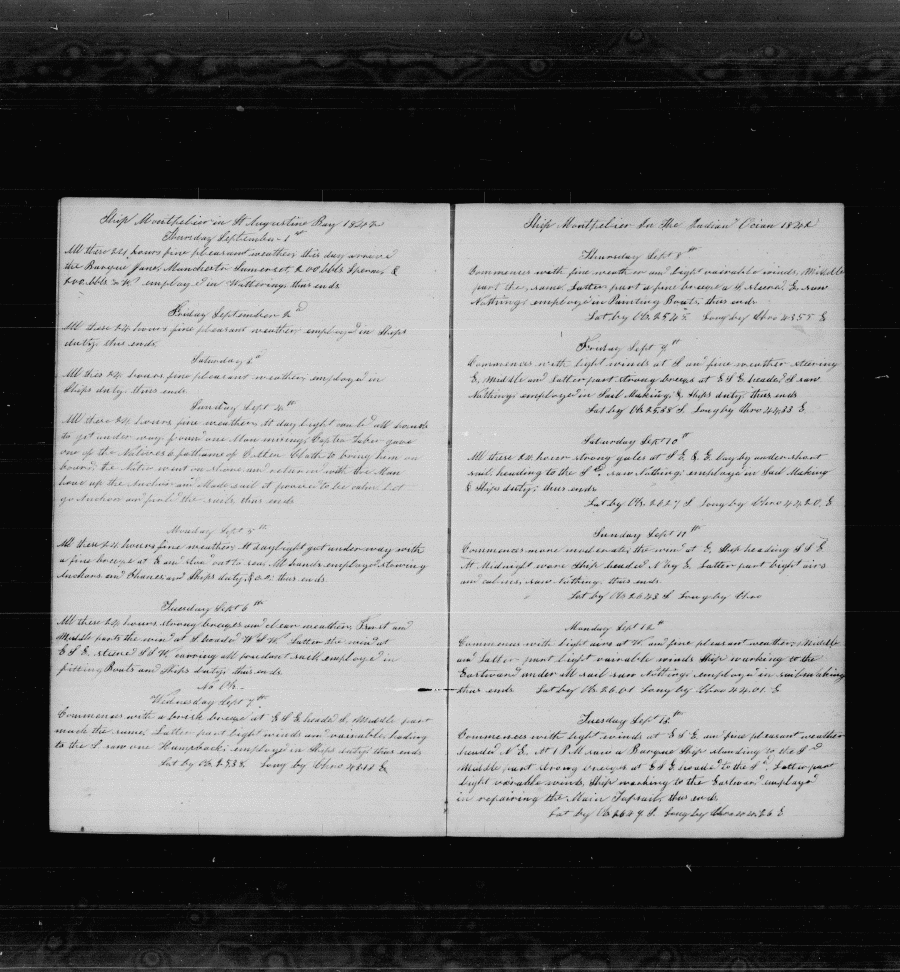 Ship Montpelier in St Augustine Bay 1842
Thursday September 1st
All these 24 hours fine pleasant weather, this day arrived
the Barque Jane, Manchester Somerset, 200 bbls Sperm, &
200 bbls employed in Wattering, thus ends
Friday September 2d
All these 24 hours fine pleasant weather employed in Ships
duty, thus ends
Saturday 3d
All these 24 hours fine pleasant weather, employed in
Ships duty. thus ends
Sunday Sept 4th
All these 24 hours fine weather, At day light called all hands
to get under way, found one Man missing, Captn Taber gave
one of the Natives 6 fathoms of Cotten Cloth to bring him on
board, the Native went on Shore and returned with the Man
hove up the Anchor and Made sail it proved to be calm let
go Anchor and furled the sails thus ends
Monday Sept 5th
All these 24 hours fine weather, At daylight got under way with
a fine breeze at E and stood out to sea, All hands employed stowing
Anchors and Chains, and Ships duty, &c. thus ends
Tuesday Sept 6th
All these 24 hours strong breezes and clear weather, First and
Middle parts the wind at S headed W S W. latter the wind at
E S E. steered S S W carrying all prudent sail, employed in
fitting Boats and Ships duty, thus ends
No Ob.
Wednesday Sept 7th
Commences with a brisk breeze at E S E headed S. Middle part
much the same, Latter part light winds and vairable, heading
to the S saw one Humpback, employed in Ships duty, thus ends
Lat by Ob. 25.38. Long by Chro 43.12 E
Ship Montpelier In the Indian Ocean 1842
Thursday Sept 8th
Commences with fine weather and light vairable winds, Middle
part the same, Latter part a fine breeze at S steered E, saw
Nothing, employed in Painting Boats, thus ends
Lat by Ob. 25.45 Long by Chro 43.55 E
Friday Sept 9th
Commences with light winds at S and fine weather steering
E, Middle and Latter part strong breezes at E S E headed S saw
Nothing, employed in Sail Making, & Ships duty, thus ends
Lat by Ob. 25.58 S Long by Chro 44.33 E
Saturday Sept 10th
All these 24 hours strong gales at S E. & E. lay by under short
sail, heading to the Sd, saw Nothing, employed in Sail Making
& Ships duty, thus ends
Lat by Ob. 26.27 S Long by Chro 44.20. E
Sunday Sept 11th
Commences more moderate, the wind at E. Ship heading S S E
At Midnight wore Ship headed N by E. Latter part light airs
and calms, saw Nothing. thus ends
Lat by Ob. 26.43 S Long by Chro
Monday Sept 12th
Commences with light airs at W. and fine pleasant weather, Middle
and Latter part light vairable winds Ship working to the
Eastward under all sail saw Nothing, employed in sail making
thus ends Lat by Ob. 26.01 Long by Chro 44.01. E
Tuesday Sept 13th
Commences with light winds at E S E and fine pleasant weather
headed N E. At 1 P.M saw a Barque Ship standing to the Sd
Middle part strong breezes at E S E headed to the Sd, Latter part
light vairable winds, Ship working to the Eastward employed
in repairing the Main Topsail, thus ends
Lat by Ob. 26.47 S. Long by Chro 44.26 E